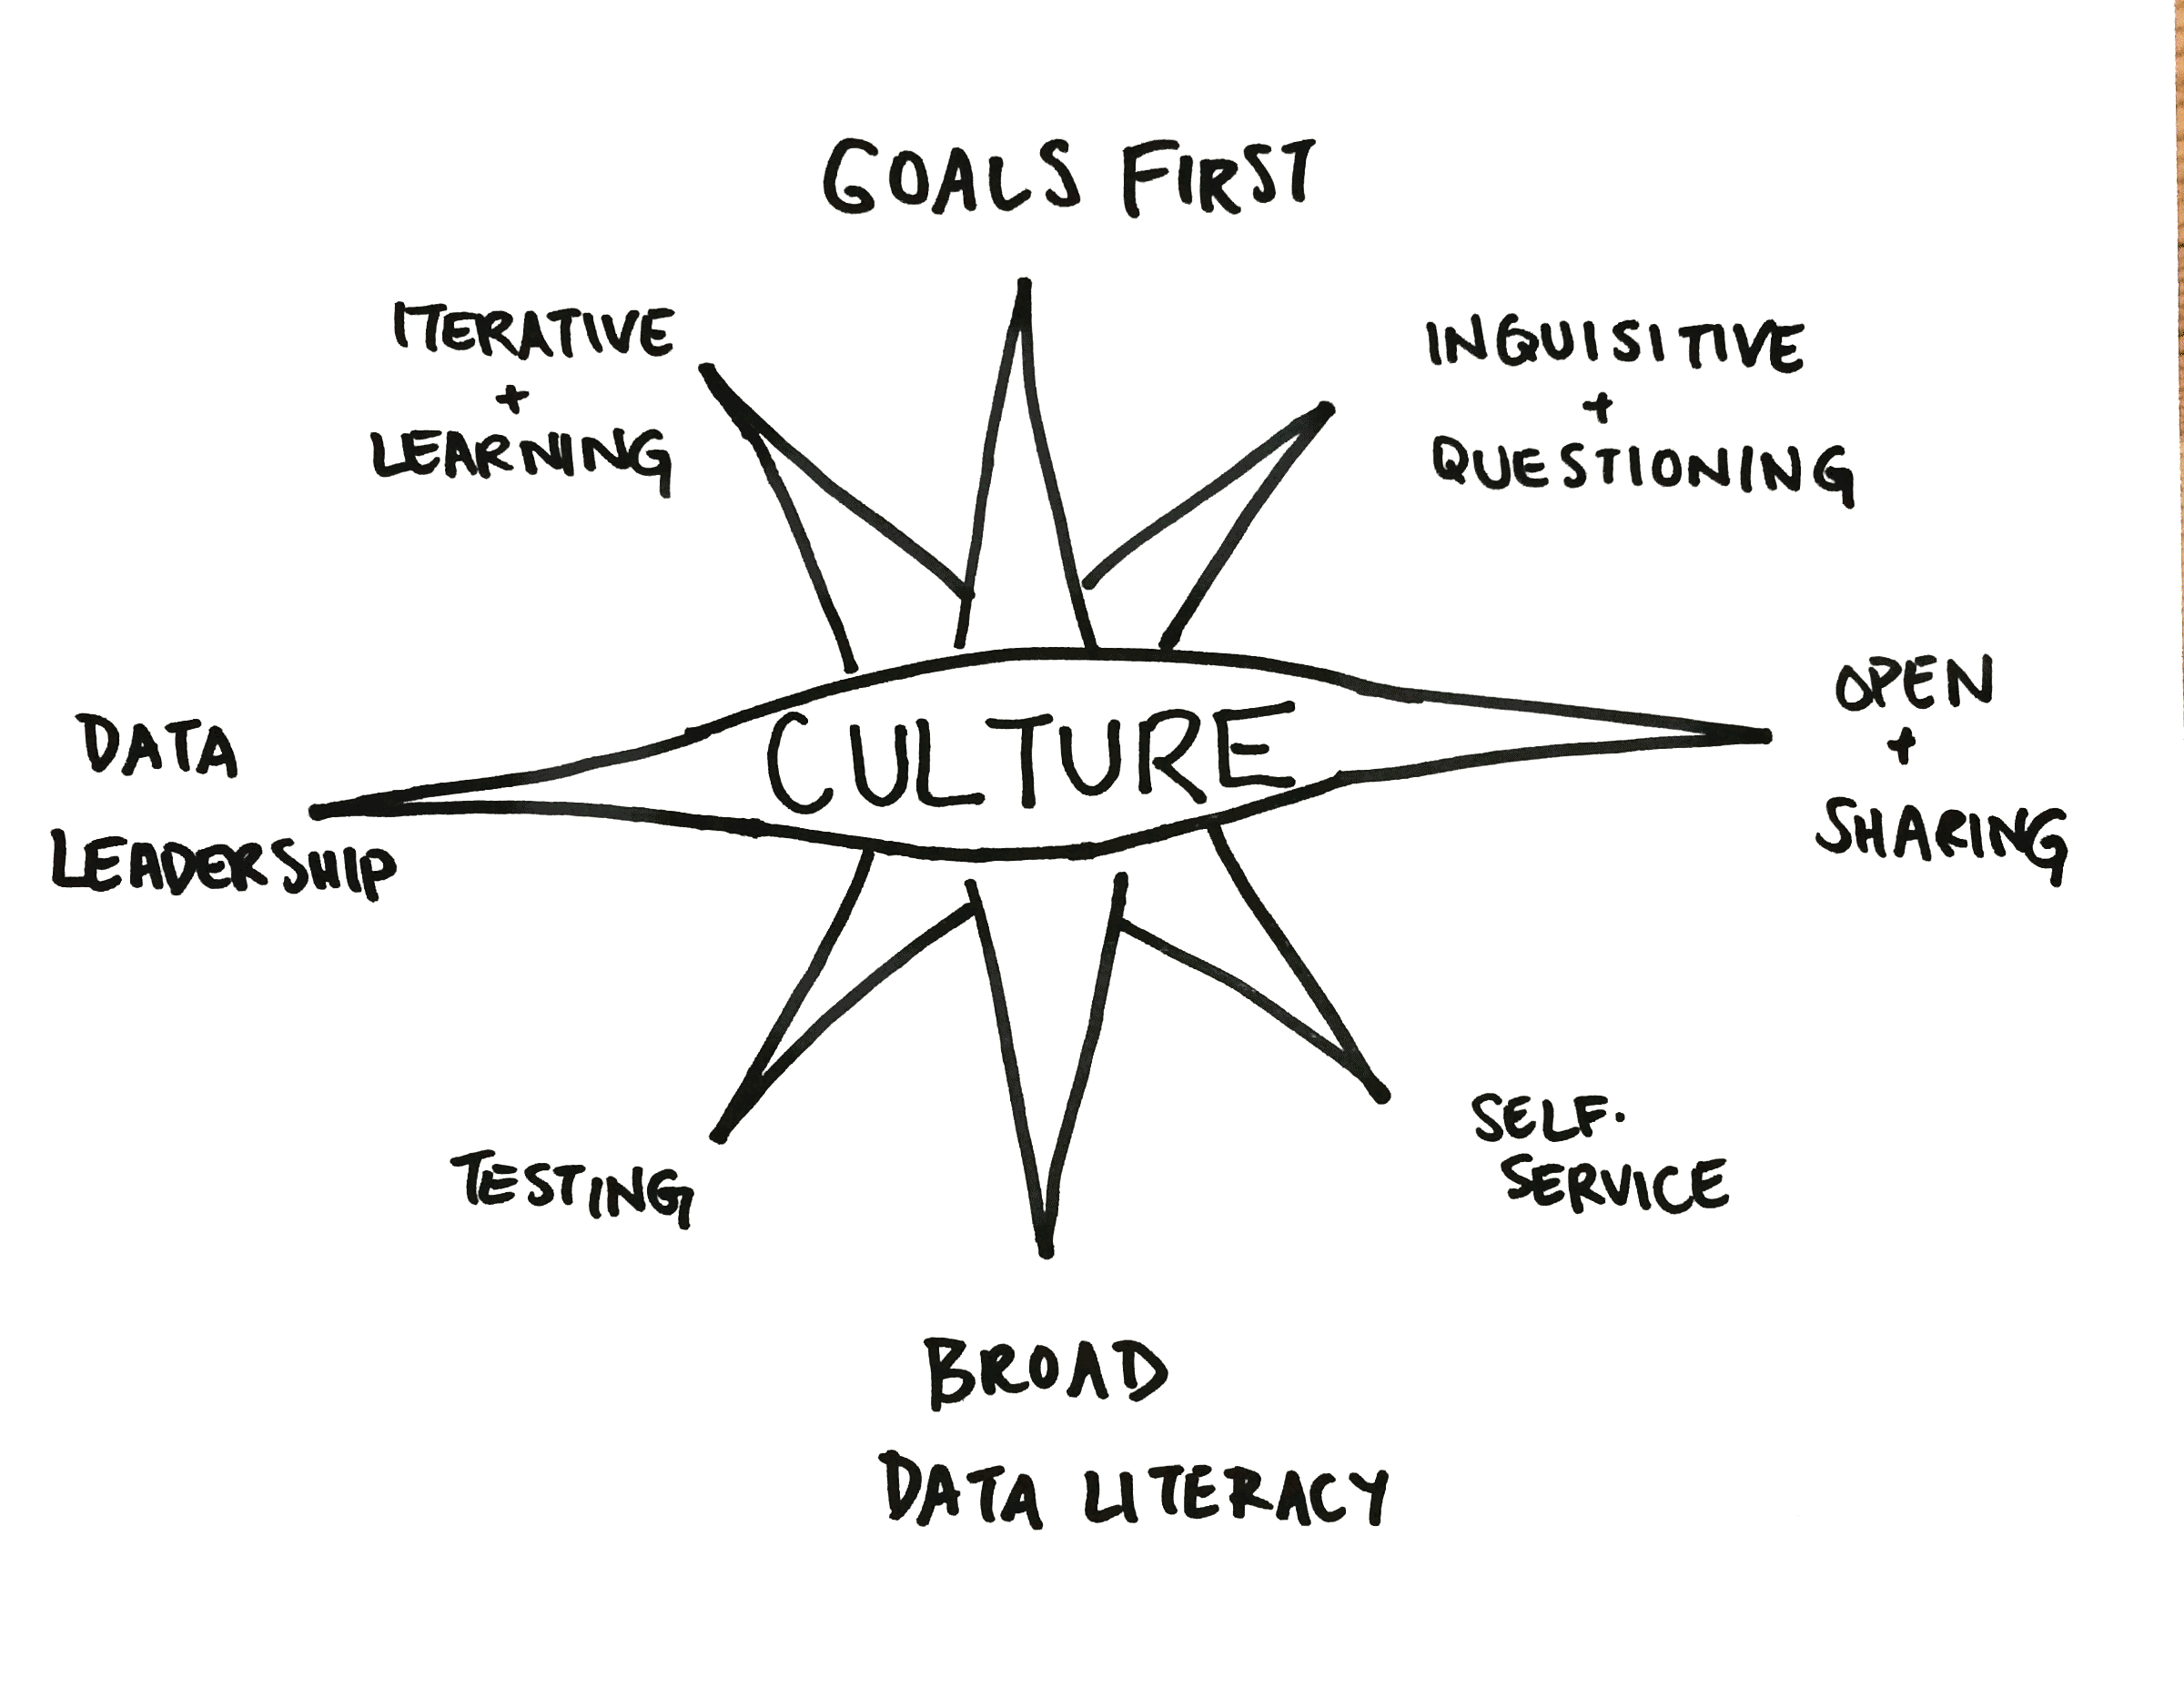 GOALS FIRST
ITERATIVE
+
LEARNING
INQUISITIVE
+
QUESTIONING
DATA
LEADERSHIP
CULTURE
OPEN
+
SHARING
TESTING
SELF-
SERVICE
BROAD
DATA LITERACY